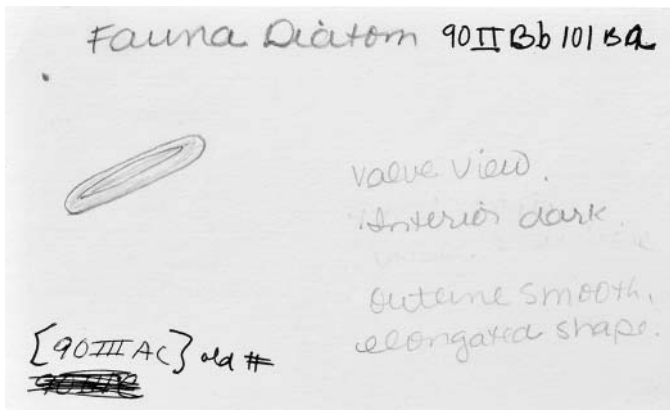 Fauna Diatom 90IIBb101Ba
Valve View.
Interior dark.
Outline smooth,
elongated shape.
[90IIIAC] old #